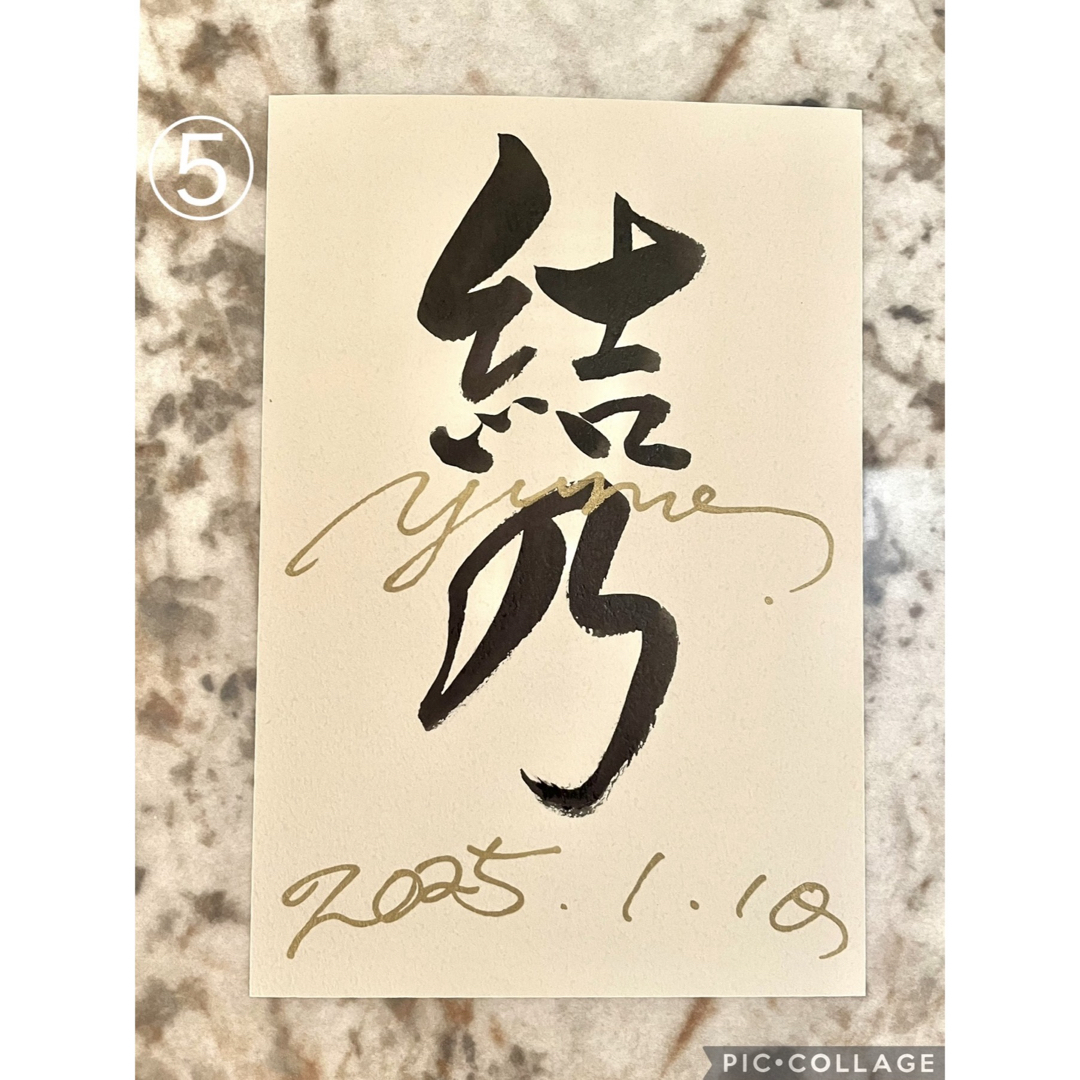 ⑤
結乃
yume
2025.1.10
PIC•COLLAGE